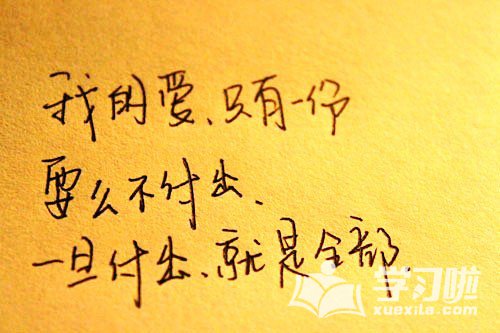 我的爱、只有一份
要么不付出、
一旦付出、就是全部.
学习啦
www.xuexila.com